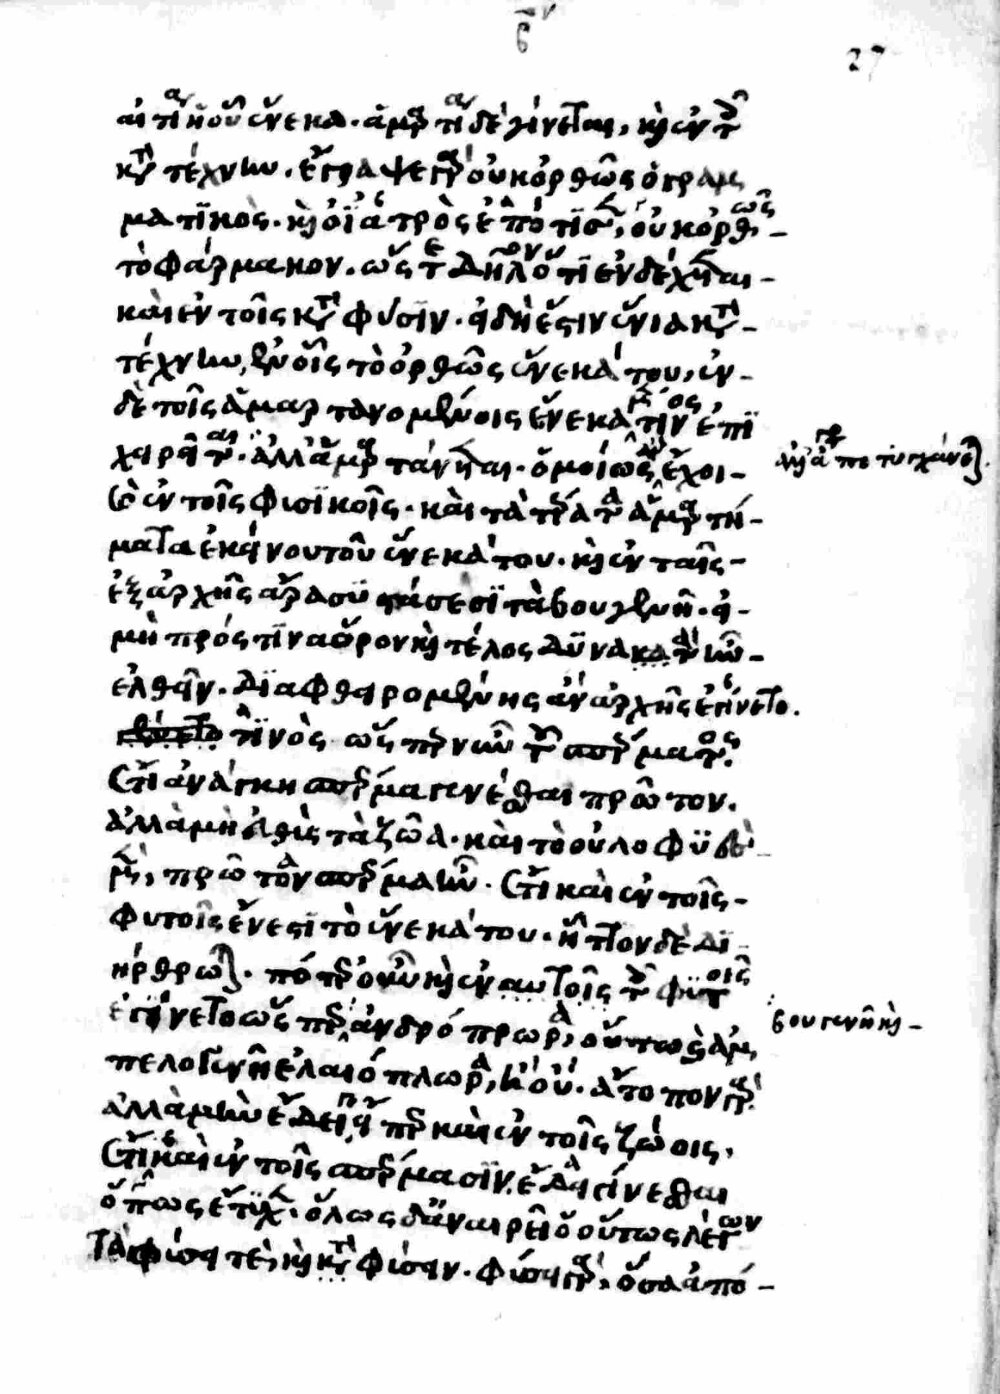 αἰτία ἡ οὗ ἕνεκα. ἁμαρτία δὲ γίνεται, καὶ ἐν τοῖς
κατὰ τέχνην. ἔγραψε γὰρ οὐκ ὀρθῶς ὁ γραμ
ματικός. καὶ ὁ ἰατρὸς ἐπότισεν, οὐκ ὀρθῶς
τὸ φάρμακον. ὥστε δῆλον ὅτι ἐνδέχεται
καὶ ἐν τοῖς κατὰ φύσιν. εἰ δὴ ἔστιν ἔνια κατὰ
τέχνην, ἐν οἷς τὸ ὀρθῶς ἕνεκά του, ἐν
δὲ τοῖς ἁμαρτανομένοις ἕνεκα μέν τινος ἐπι
χειρεῖται. ἀλλὰ ἁμαρτάνεται. ὁμοίως ἂν ἔχοι
καὶ ἐν τοῖς φυσικοῖς. καὶ τὰ τέρατα ἁμαρτή
ματα ἐκείνου τοῦ ἕνεκά του. καὶ ἐν ταῖς
ἐξ ἀρχῆς ἄρα συστάσεσι τὰ βουγενῆ. εἰ
μὴ πρός τινα ὅρον καὶ τέλος δυνατὰ ἦν
ἐλθεῖν. διαφθειρομένης ἂν ἀρχῆς ἐγίνετο.
τινὸς ὥσπερ νῦν τοῦ σπέρματος.
ἔτι ἀνάγκη σπέρμα γενέσθαι πρῶτον.
ἀλλὰ μὴ εὐθὺς τὰ ζῶα. καὶ τὸ οὐλοφυὲς
μὲν, πρῶτον σπέρμα ἦν. ἔτι καὶ ἐν τοῖς
φυτοῖς ἔνεστι τὸ ἕνεκά του. ἧττον δὲ δι
ήρθρωται. πότερον οὖν καὶ ἐν αὐτοῖς τοῖς φυτοῖς
ἐγίνετο ὥσπερ ἀνδρόπρωρα, οὕτως ἀμ
πελογενῆ ἐλαιόπρωρα, ἢ οὔ. ἄτοπον γάρ.
ἀλλὰ μὴν ἔδει εἴπερ καὶ ἐν τοῖς ζώοις.
ἔτι καὶ ἐν τοῖς σπέρμασιν ἔδει γίνεσθαι
ὅπως ἔτυχεν. ὅλως δ' ἀναιρεῖ ὁ οὕτως λέγων
τὰ φύσει τὲ, καὶ κατὰ φύσιν. φύσει γὰρ, ὅσα ἀπό
27
ἀποτυγχάνεται.
βουγενῆ καὶ